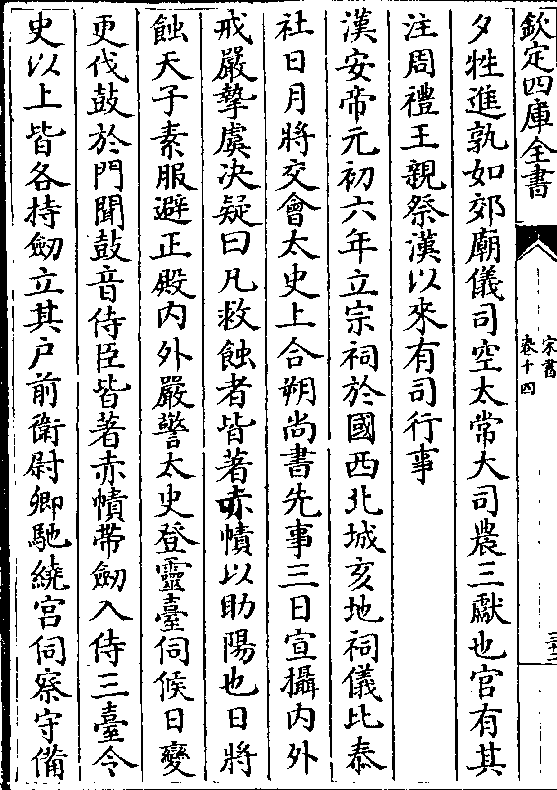 欽定四庫全書
宋書
卷十四
夕牲進孰如郊廟儀司空太常大司農三獻也官有其
注周禮王親祭漢以來有司行事
漢安帝元初六年立宗祠於國西北城亥地祠儀比泰
社日月將交會太史上合朔尚書先事三日宣攝内外
戒嚴摯虞決疑曰凡救蝕者皆著赤幘以助陽也日將
蝕天子素服避正殿内外嚴警太史登靈臺伺候日變
更伐鼓於門聞鼓音侍臣皆著赤幘帶劒入侍三臺令
史以上皆各持劒立其户前衛尉卿馳繞宫伺察守備